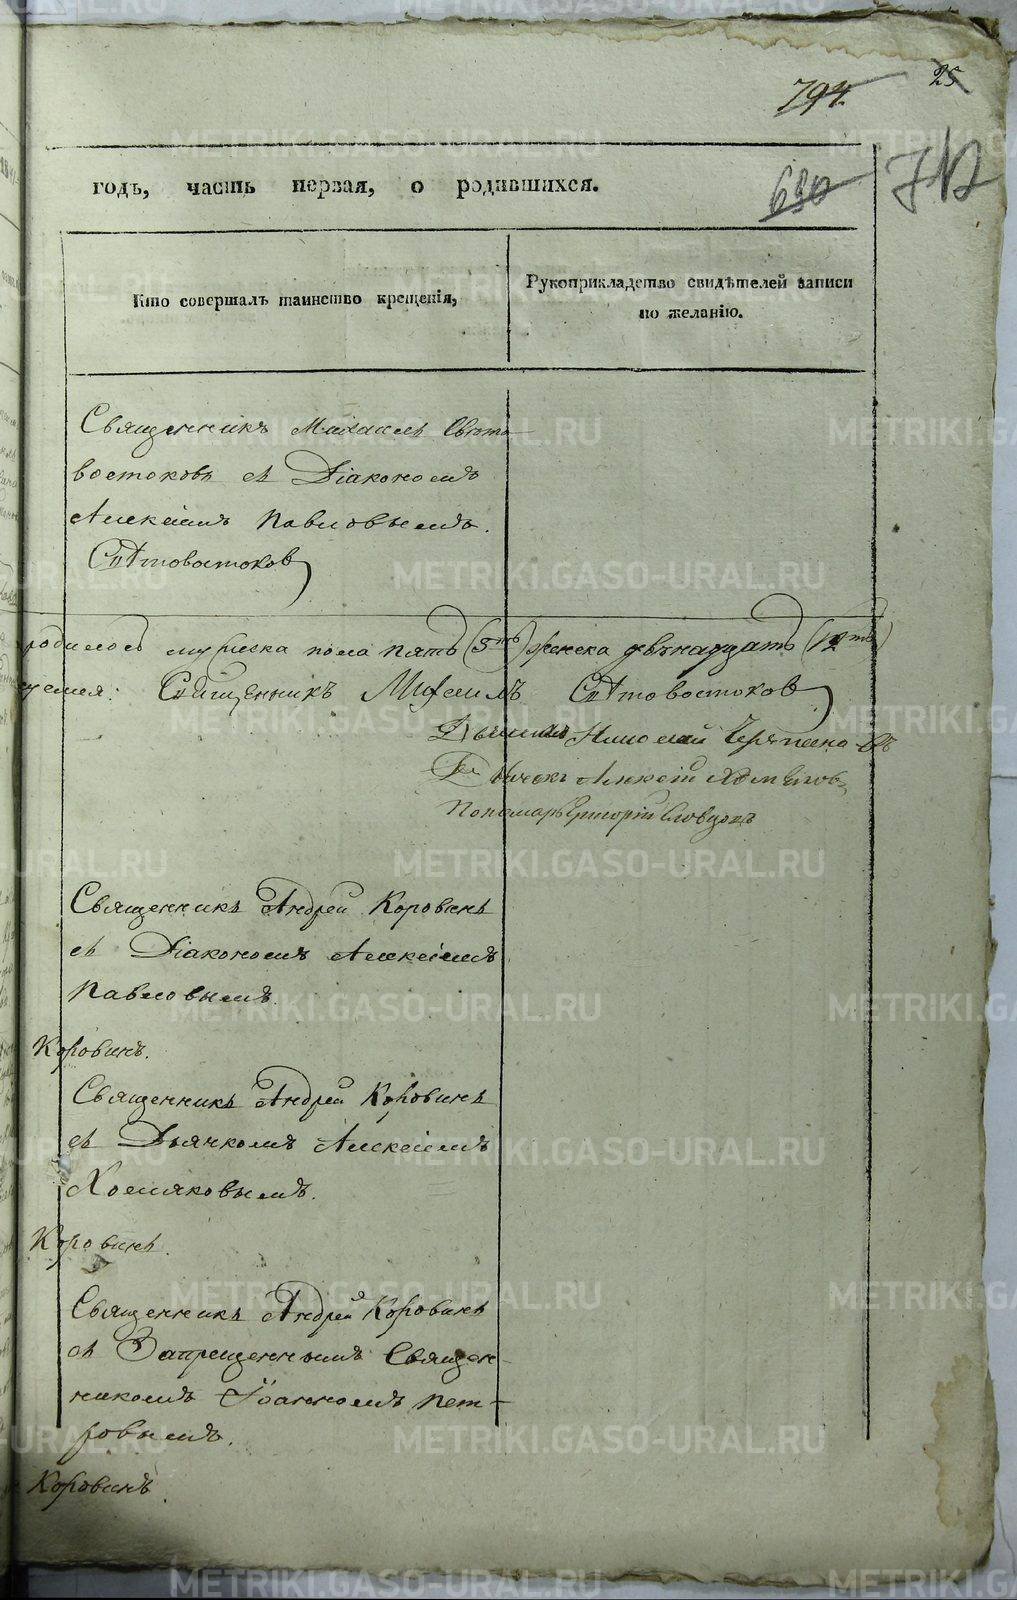 25
794.
годъ, часть первая, о родившихся.
690
712
Кто совершалъ таинство крещенія,
Рукоприкладство свидѣтелей записи
по желанію.
Священникъ Михаилъ Свѣто-
востоковъ съ Діакономъ
Алексіемъ Павловымъ.
Свѣтовостоков
родилось мужеска пола пять (5ть) женска двѣнадцать (12ть)
Священникъ Михаилъ Свѣтовостоков
Дьячокъ Алексій Хомяковъ
Пономарь Григорій Словцовъ
Священникъ Андрей Коровинъ
съ Діакономъ Алексіемъ
Павловымъ.
Коровинъ.
Священникъ Андрей Коровинъ
съ Дьячкомъ Алексіемъ
Хомяковымъ.
Коровинъ.
Священникъ Андрей Коровинъ
съ Запрещеннымъ Священ-
никомъ Іоанномъ Пет-
ровымъ.
Коровинъ
METRIKI.GASO-URAL.RU